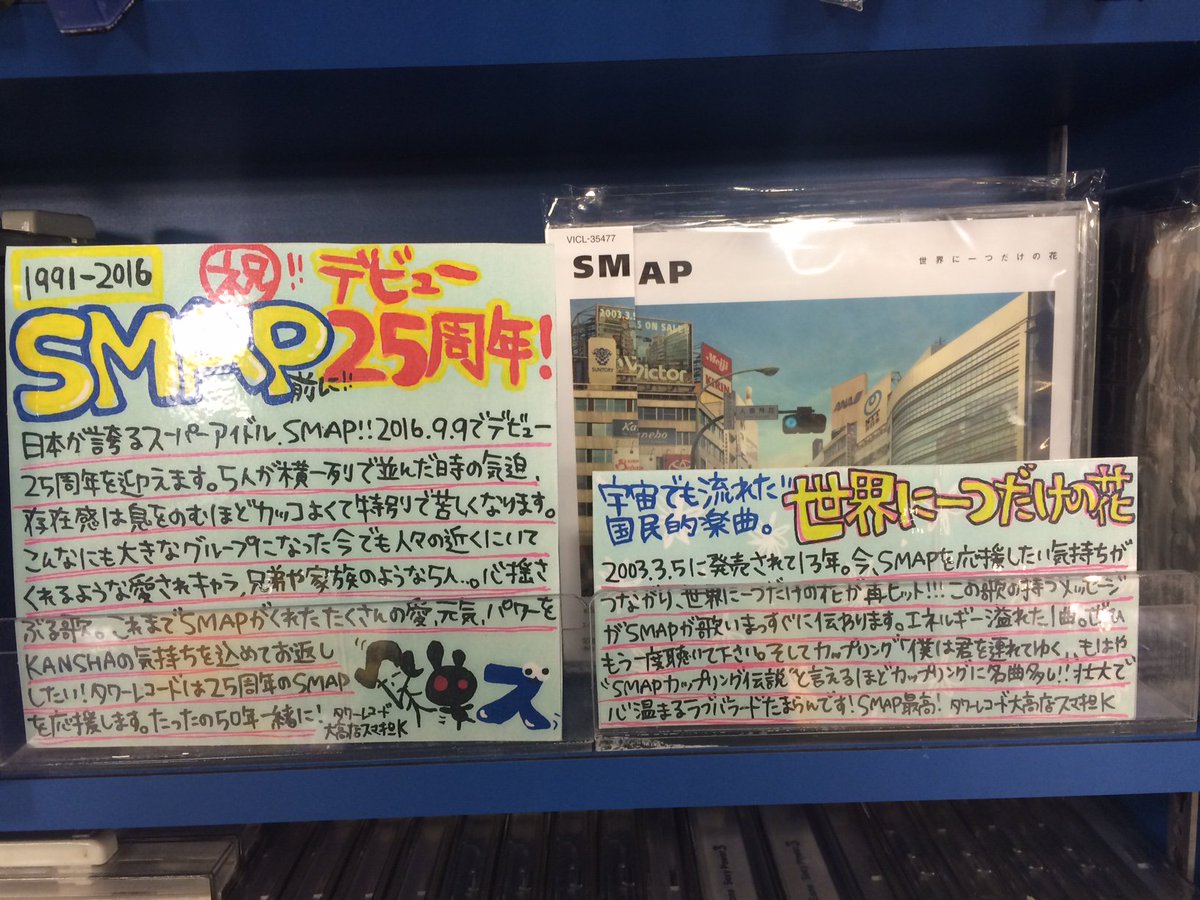 1991-2016
祝!! デビュー
SMAP 25周年!
前に!!
日本が誇るスーパーアイドル、SMAP!! 2016.9.9でデビュー
25周年を迎えます。5人が横一列で並んだ時の気迫、
存在感は息をのむほどカッコよくて特別で苦しくなります。
こんなにも大きなグループになった今でも人々の近くにいて
くれるような愛されキャラ,兄弟や家族のような5人…。心揺さ
ぶる歌。これまでSMAPがくれたたくさんの愛、元気、パワーを
KANSHAの気持ちを込めてお返し
したい!タワーレコードは25周年のSMAP
を応援します。たったの50年一緒に!
タワーレコード
大高店スマ担K
ズ
VICL-35477
SMAP
世界に一つだけの花
2003.3.5
ON SALE!
SUNTORY
Victor
Meiji
KIRIN
Kanebo
TOYOTA
ANA
宇宙でも流れた
国民的楽曲。
世界に一つだけの花
2003.3.5に発売されて13年。今、SMAPを応援したい気持ちが
つながり、世界に一つだけの花が再ヒット!!! この歌の持つメッセージ
がSMAPが歌いまっすぐに伝わります。エネルギー溢れた1曲。ぜひ
もう一度聴いて下さい。そしてカップリング"僕は君を連れてゆく、もはや
"SMAPカップリング伝説"と言えるほどカップリングに名曲多し!! 壮大で
心温まるラブバラードたまらんです! SMAP最高! タワーレコード大高店スマ担K